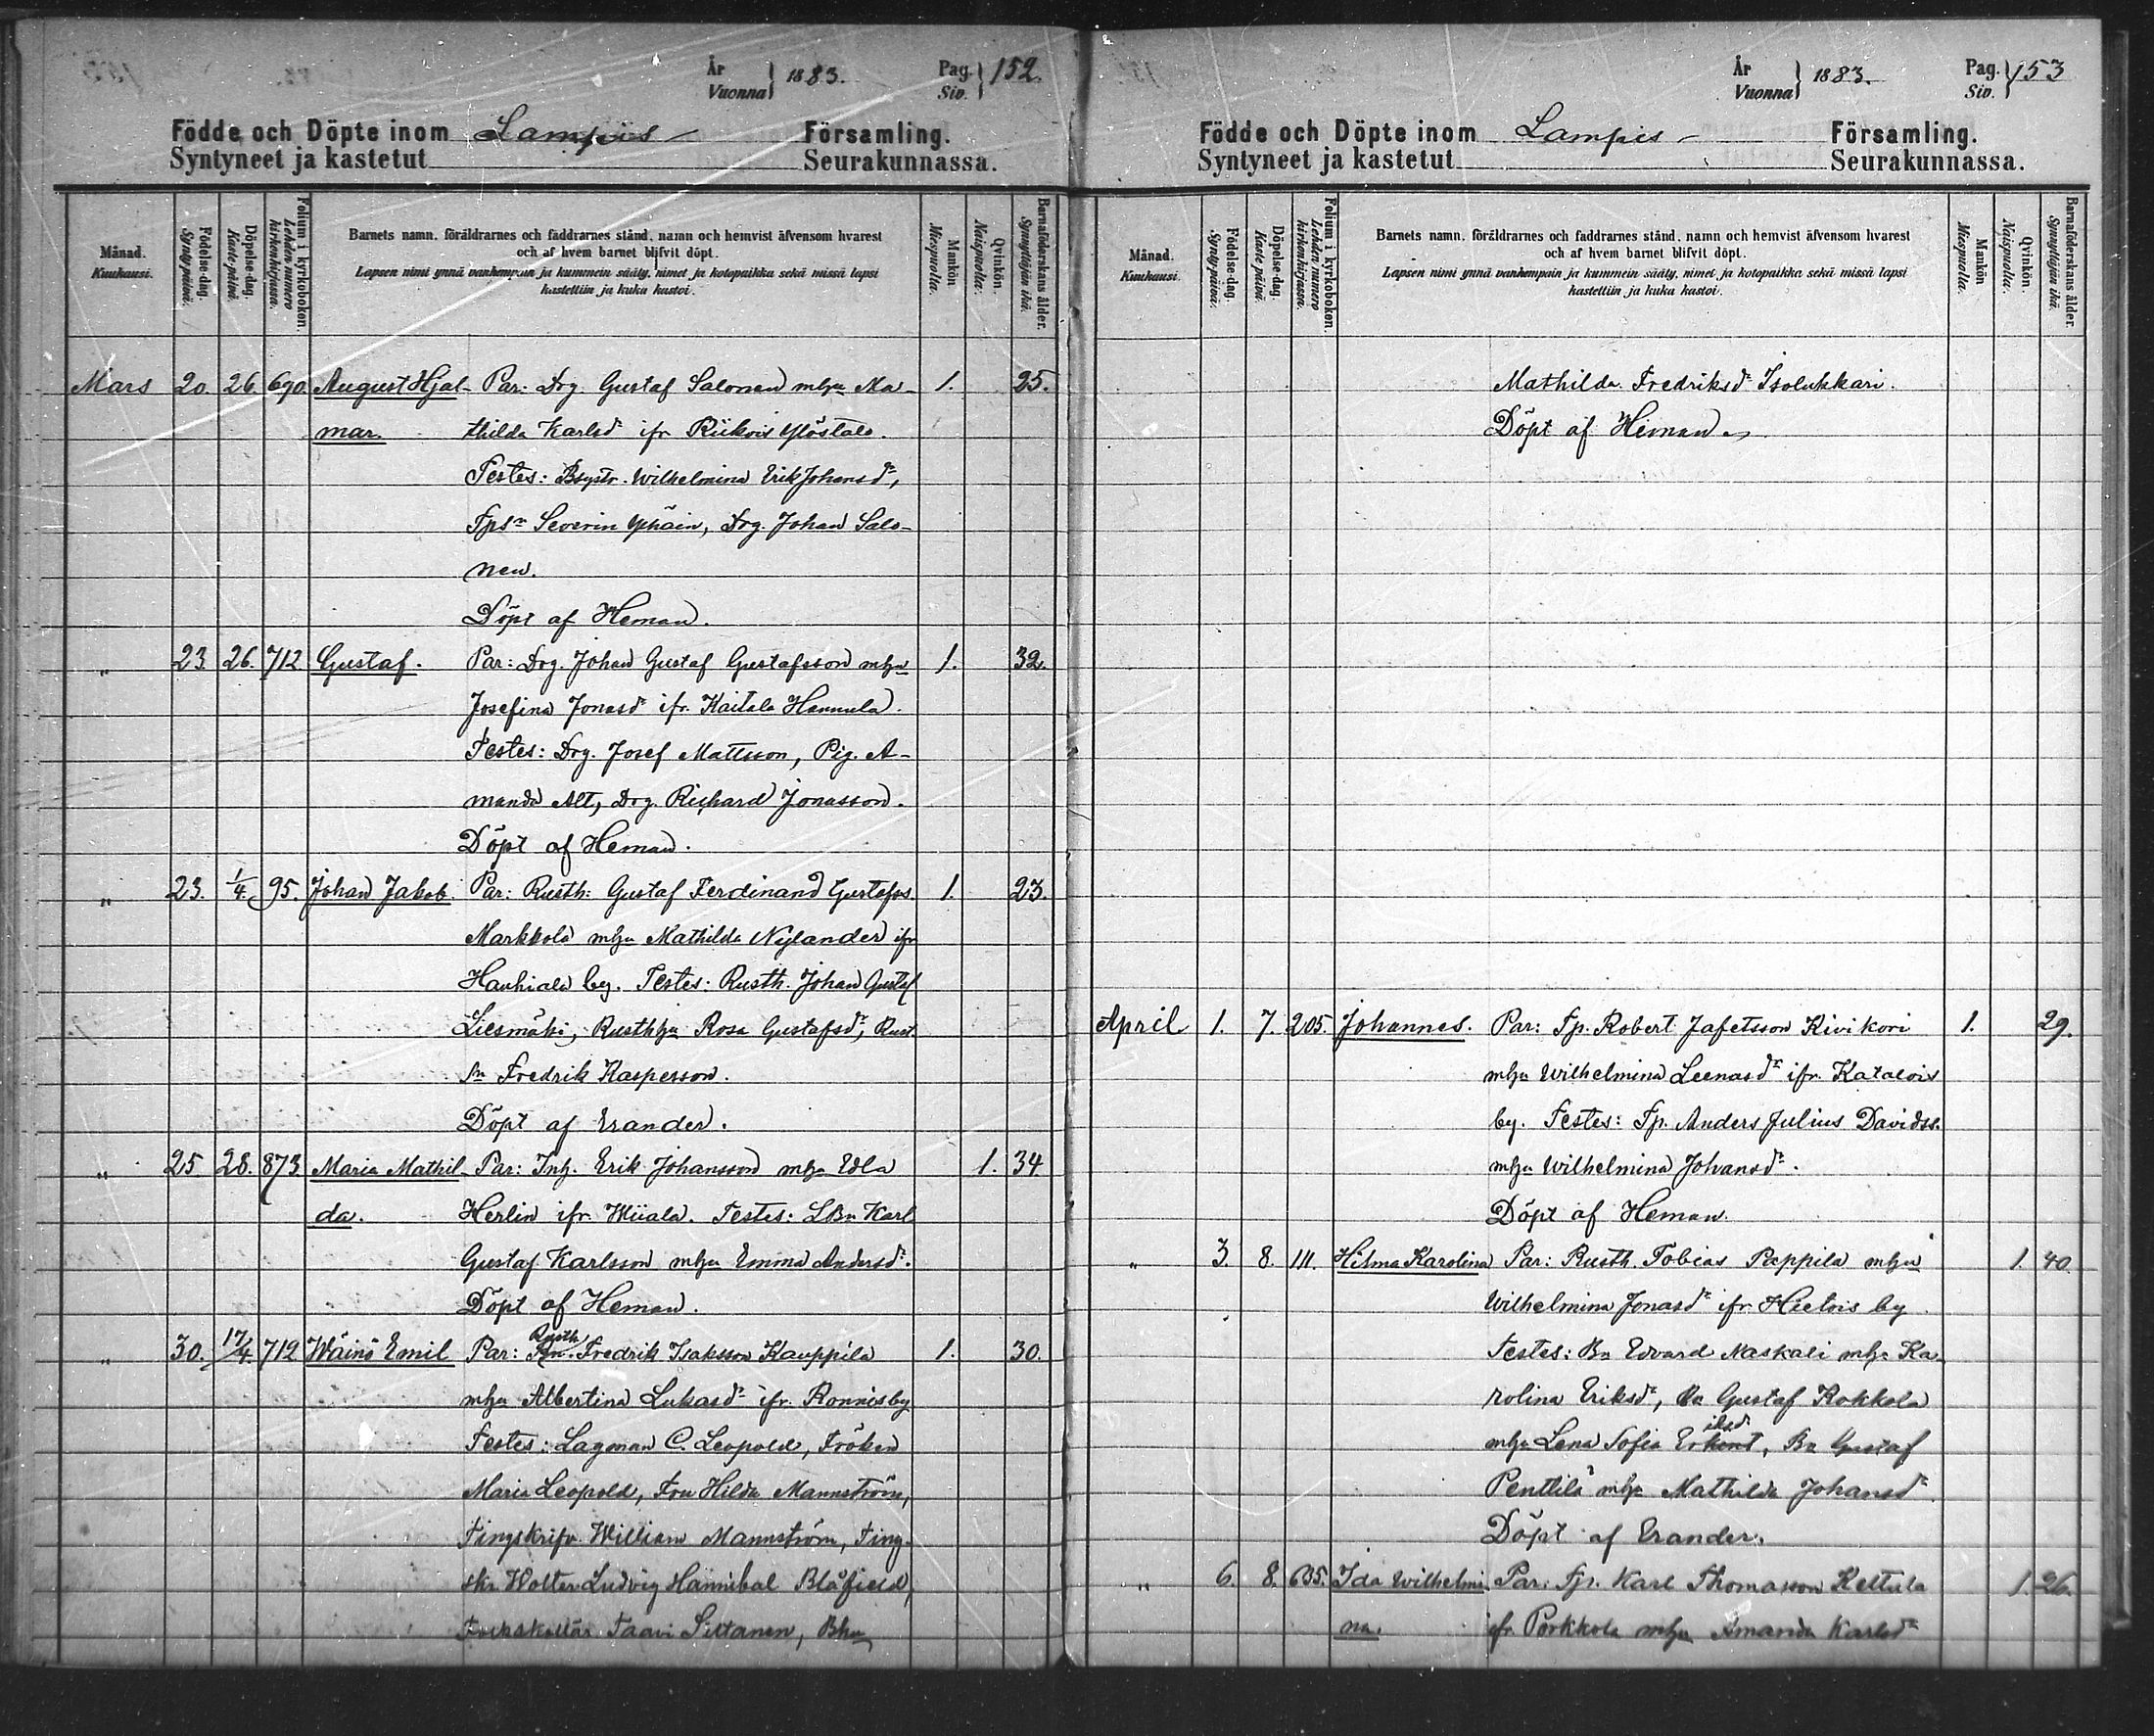 År
Vuonna } 1883. Pag.
Siv. } 152.
Födde och Döpte inom Lampis Församling.
Syntyneet ja kastetut Seurakunnassa.
Månad.
Kuukausi.
Födelse-dag.
Synty-päivä.
Döpelse-dag.
Kaste-päivä.
Folium i kyrkoboken.
Lehden numero
kirkonkirjassa.
Barnets namn, föräldrarnes och faddrarnes stånd, namn och hemvist äfvensom hvarest
och af hvem barnet blifvit döpt.
Lapsen nimi ynnä vanhempain ja kummein sääty, nimet ja kotopaikka sekä missä lapsi
kastettiin ja kuka kastoi.
Mankön
Miespuolia.
Qvinkön.
Naispuolia.
Barnaföderskans ålder.
Synnyttäjän ikä.
Mars 20. 26. 690. August Hjal- Par: Drg. Gustaf Salonen mhu Ma- 1. 25.
mar. thilda Karlsdr ifr Riikois Ylöstalo.
Testes: Wilhelmina Erik Johansdr,
Severin Yhäin, Drg. Johan Salo-
nen.
Döpt af Heman.
„ 23. 26. 712 Gustaf. Par: Drg. Johan Gustaf Gustafsson mhu 1. 32.
Josefina Jonasdr ifr. Kaitala Hannula.
Testes: Drg. Josef Mattsson, Pig. A-
manda Alt, Drg. Richard Jonasson.
Döpt af Heman.
„ 23. 1/4. 95. Johan Jakob. Par: Rusth: Gustaf Ferdinand Gustafss. 1. 23.
Markkola mhu Mathilda Nylander ifr
Hauhiala by. Testes: Rusth. Johan Gustaf
Liesmäki, Rusthhu Rosa Gustafsdr, Rust.
sn Fredrik Kasperson.
Döpt af Erander.
„ 25. 28. 873. Maria Mathil- Par: Inh. Erik Johansson mhu Edla 1. 34
da. Herlin ifr Wiiala. Testes: Karl
Gustaf Karlsson mhu Emma Andersdr.
Döpt af Heman.
„ 30. 17/4. 712 Wäinö Emil Par: Rusth Fredrik Isaksson Kauppila 1. 30.
mhu Albertina Lukasdr ifr. Ronnis by
Testes: Lagman C. Leopold, Fröken
Maria Leopold, Fru Hilda Mannström,
Tingskrifv. William Mannström, Ting-
skr. Wolter Ludvig Hannibal Blåfield,
Taavi Siltanen, Bhu
År
Vuonna } 1883. Pag.
Siv. } 153
Födde och Döpte inom Lampis Församling.
Syntyneet ja kastetut Seurakunnassa.
Månad.
Kuukausi.
Födelse-dag.
Synty-päivä.
Döpelse-dag.
Kaste-päivä.
Folium i kyrkoboken.
Lehden numero
kirkonkirjassa.
Barnets namn, föräldrarnes och faddrarnes stånd, namn och hemvist äfvensom hvarest
och af hvem barnet blifvit döpt.
Lapsen nimi ynnä vanhempain ja kummein sääty, nimet ja kotopaikka sekä missä lapsi
kastettiin ja kuka kastoi.
Mankön
Miespuolia.
Qvinkön.
Naispuolia.
Barnaföderskans ålder.
Synnyttäjän ikä.
Mathilda Fredriksdr Isolukkari.
Döpt af Heman
April 1. 7. 205. Johannes. Par: Tp. Robert Jafetsson Kivikori 1. 29.
mhu Wilhelmina Leenasdr ifr. Katalois
by. Testes: Tp. Anders Julius Davidss.
mhu Wilhelmina Johansdr.
Döpt af Heman.
„ 3. 8. 111. Hilma Karolina Par: Rusth. Tobias Pappila mhu 1. 40.
Wilhelmina Jonasdr ifr. Hietois by
Testes: Bn Edvard Naskali mhu Ka-
rolina Eriksdr, Bn Gustaf Rokkola
mhu Lena Sofia Eriksd, Bn Gustaf
Penttilä mhu Mathilda Johansdr
Döpt af Erander.
„ 6. 8. 635. Ida Wilhelmi- Par: Tp. Karl Thomasson Kettula 1. 26.
na. ifr. Porkkola mhu Amanda Karlsdr